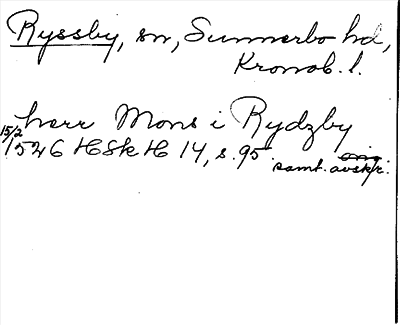 Ryssby, sn, Sunnerbo hd,
Kronob. l.
herr Mons i Rydzby
15/2 1526 HSkH 14, s. 95.
samt. avskr.